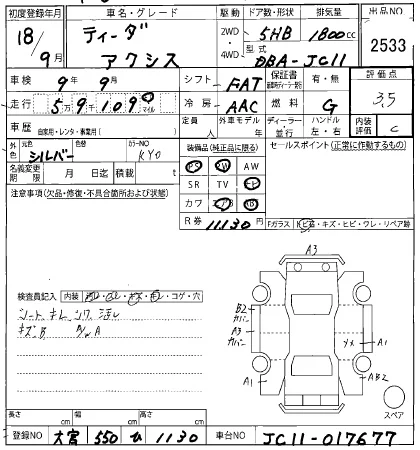 初度登録年月 車名・グレード 駆動 ドア数・形状 排気量 出品NO
18/9月 ティーダ アクシス 2WD・4WD 5HB 1800cc 2533
型式 DBA-JC11
車検 9年 9月 シフト FAT 保証書 有・無 評価点
走行 5万9千109 マイル 冷房 AAC 燃料 G 3.5
車歴 自家用・レンタ・事業用( ) 定員 人 外車モデル 年 ディーラー・並行 ハンドル 左・右 内装評価 C
外色 元色 シルバー 色替 カラーNO KY0 装備品(純正品に限る) セールスポイント(正常に作動するもの)
名義変更期限 月 日迄 積載 t PS PW AW
注意事項(欠品・修復・不具合箇所および状態) SR TV
カワ エアB
R券 11130円 Fガラス トビ石・キズ・ヒビ・ワレ・リペア跡
A3
検査員記入 内装 ・コゲ・穴
シート キレ シワ
キズB
B2
カバー
A3
カバー
A1
A1
AB2
スペア
長さ cm 幅 cm 高さ cm
登録NO 大宮 550 ひ 1130 車台NO JC11-017677